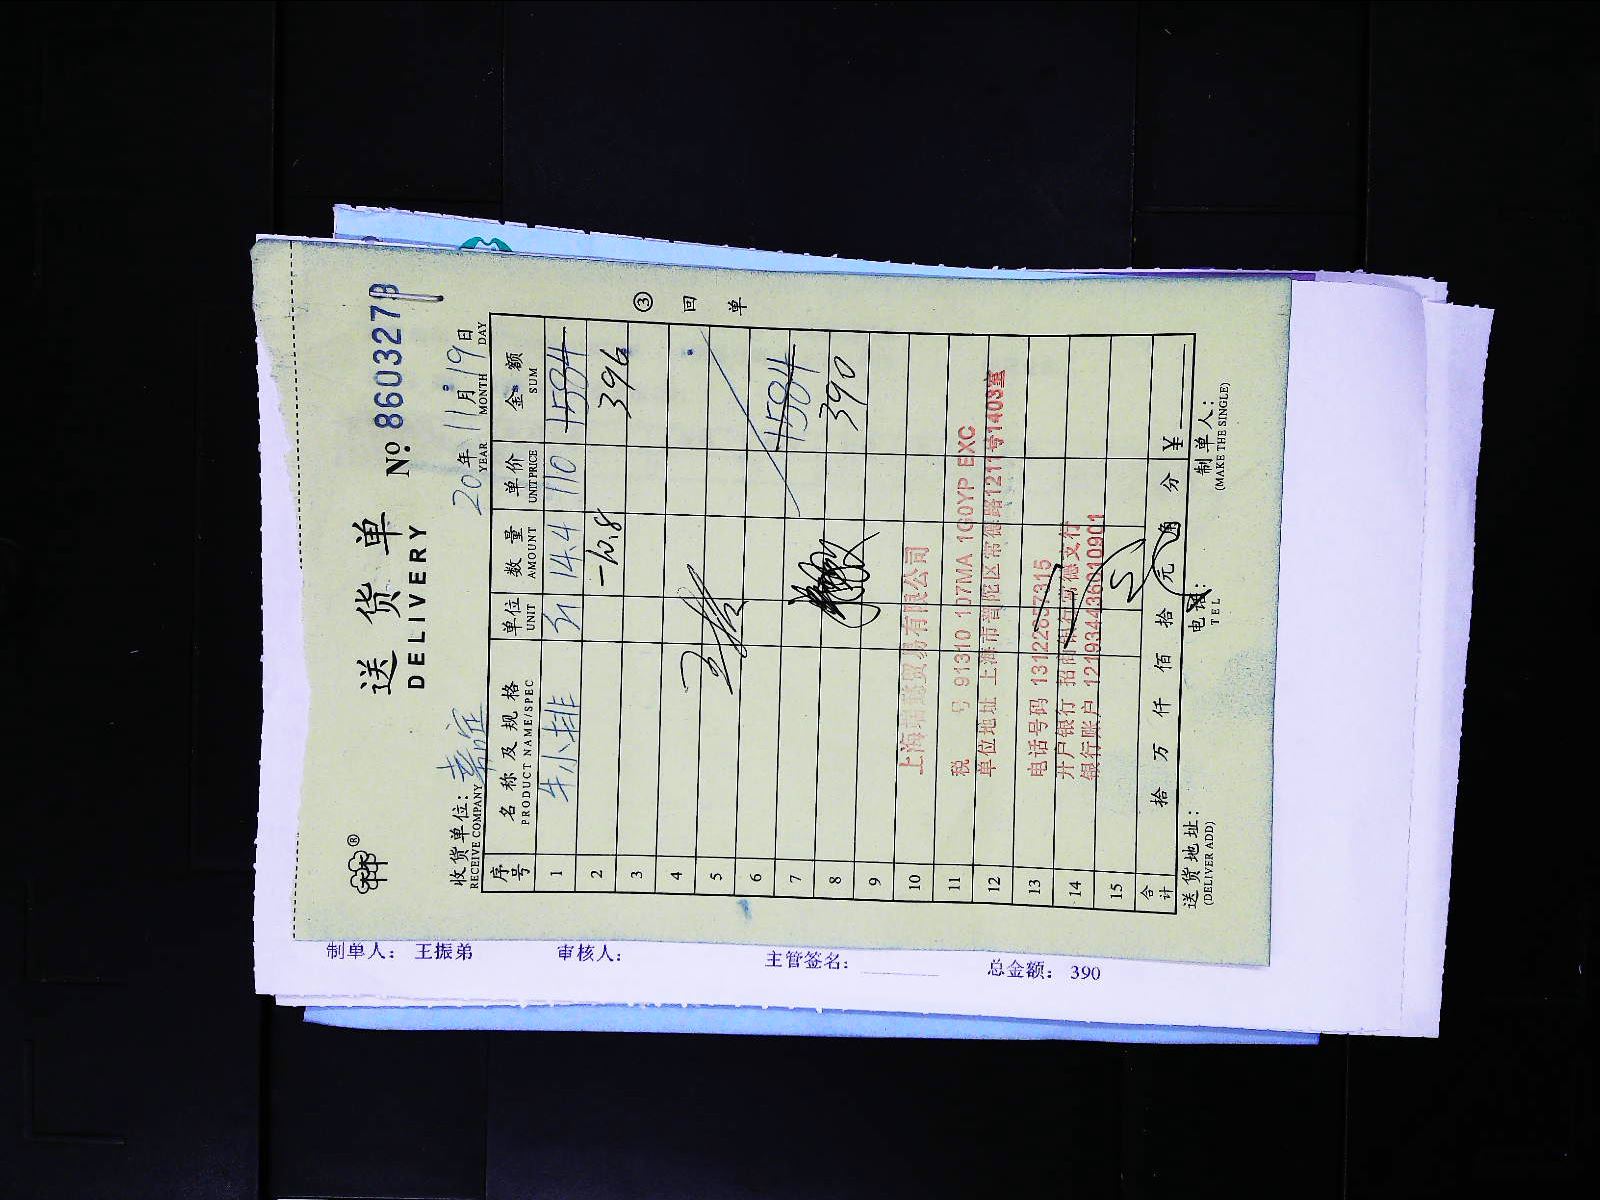 送货单
DELIVERY
№ 8603279
收货单位：嘉定
RECEIVE COMPANY
20 年 11 月 19 日
YEAR MONTH DAY
③ 回单
序号 名称及规格 单位 数量 单价 金额
PRODUCT NAME/SPEC UNIT AMOUNT UNIT PRICE SUM
1 牛小排 14.4 110 1584
2 -10.8 396
3
4
5
6
7 1584
8 390
9
10
11
12
13
14
15
上海瑞懿贸易有限公司
税 号 91310 107MA 1G0YP EXC
单位地址 上海市普陀区常德路1211号1403室
电话号码 13122887315
开户银行 招商银行常德支行
银行账户 121934436010901
合计 拾 万 仟 佰 拾 元 角 分 ¥
送货地址：
(DELIVER ADD)
电话：
TEL
制单人：
(MAKE THE SINGLE)
制单人： 王振弟 审核人： 主管签名： 总金额： 390